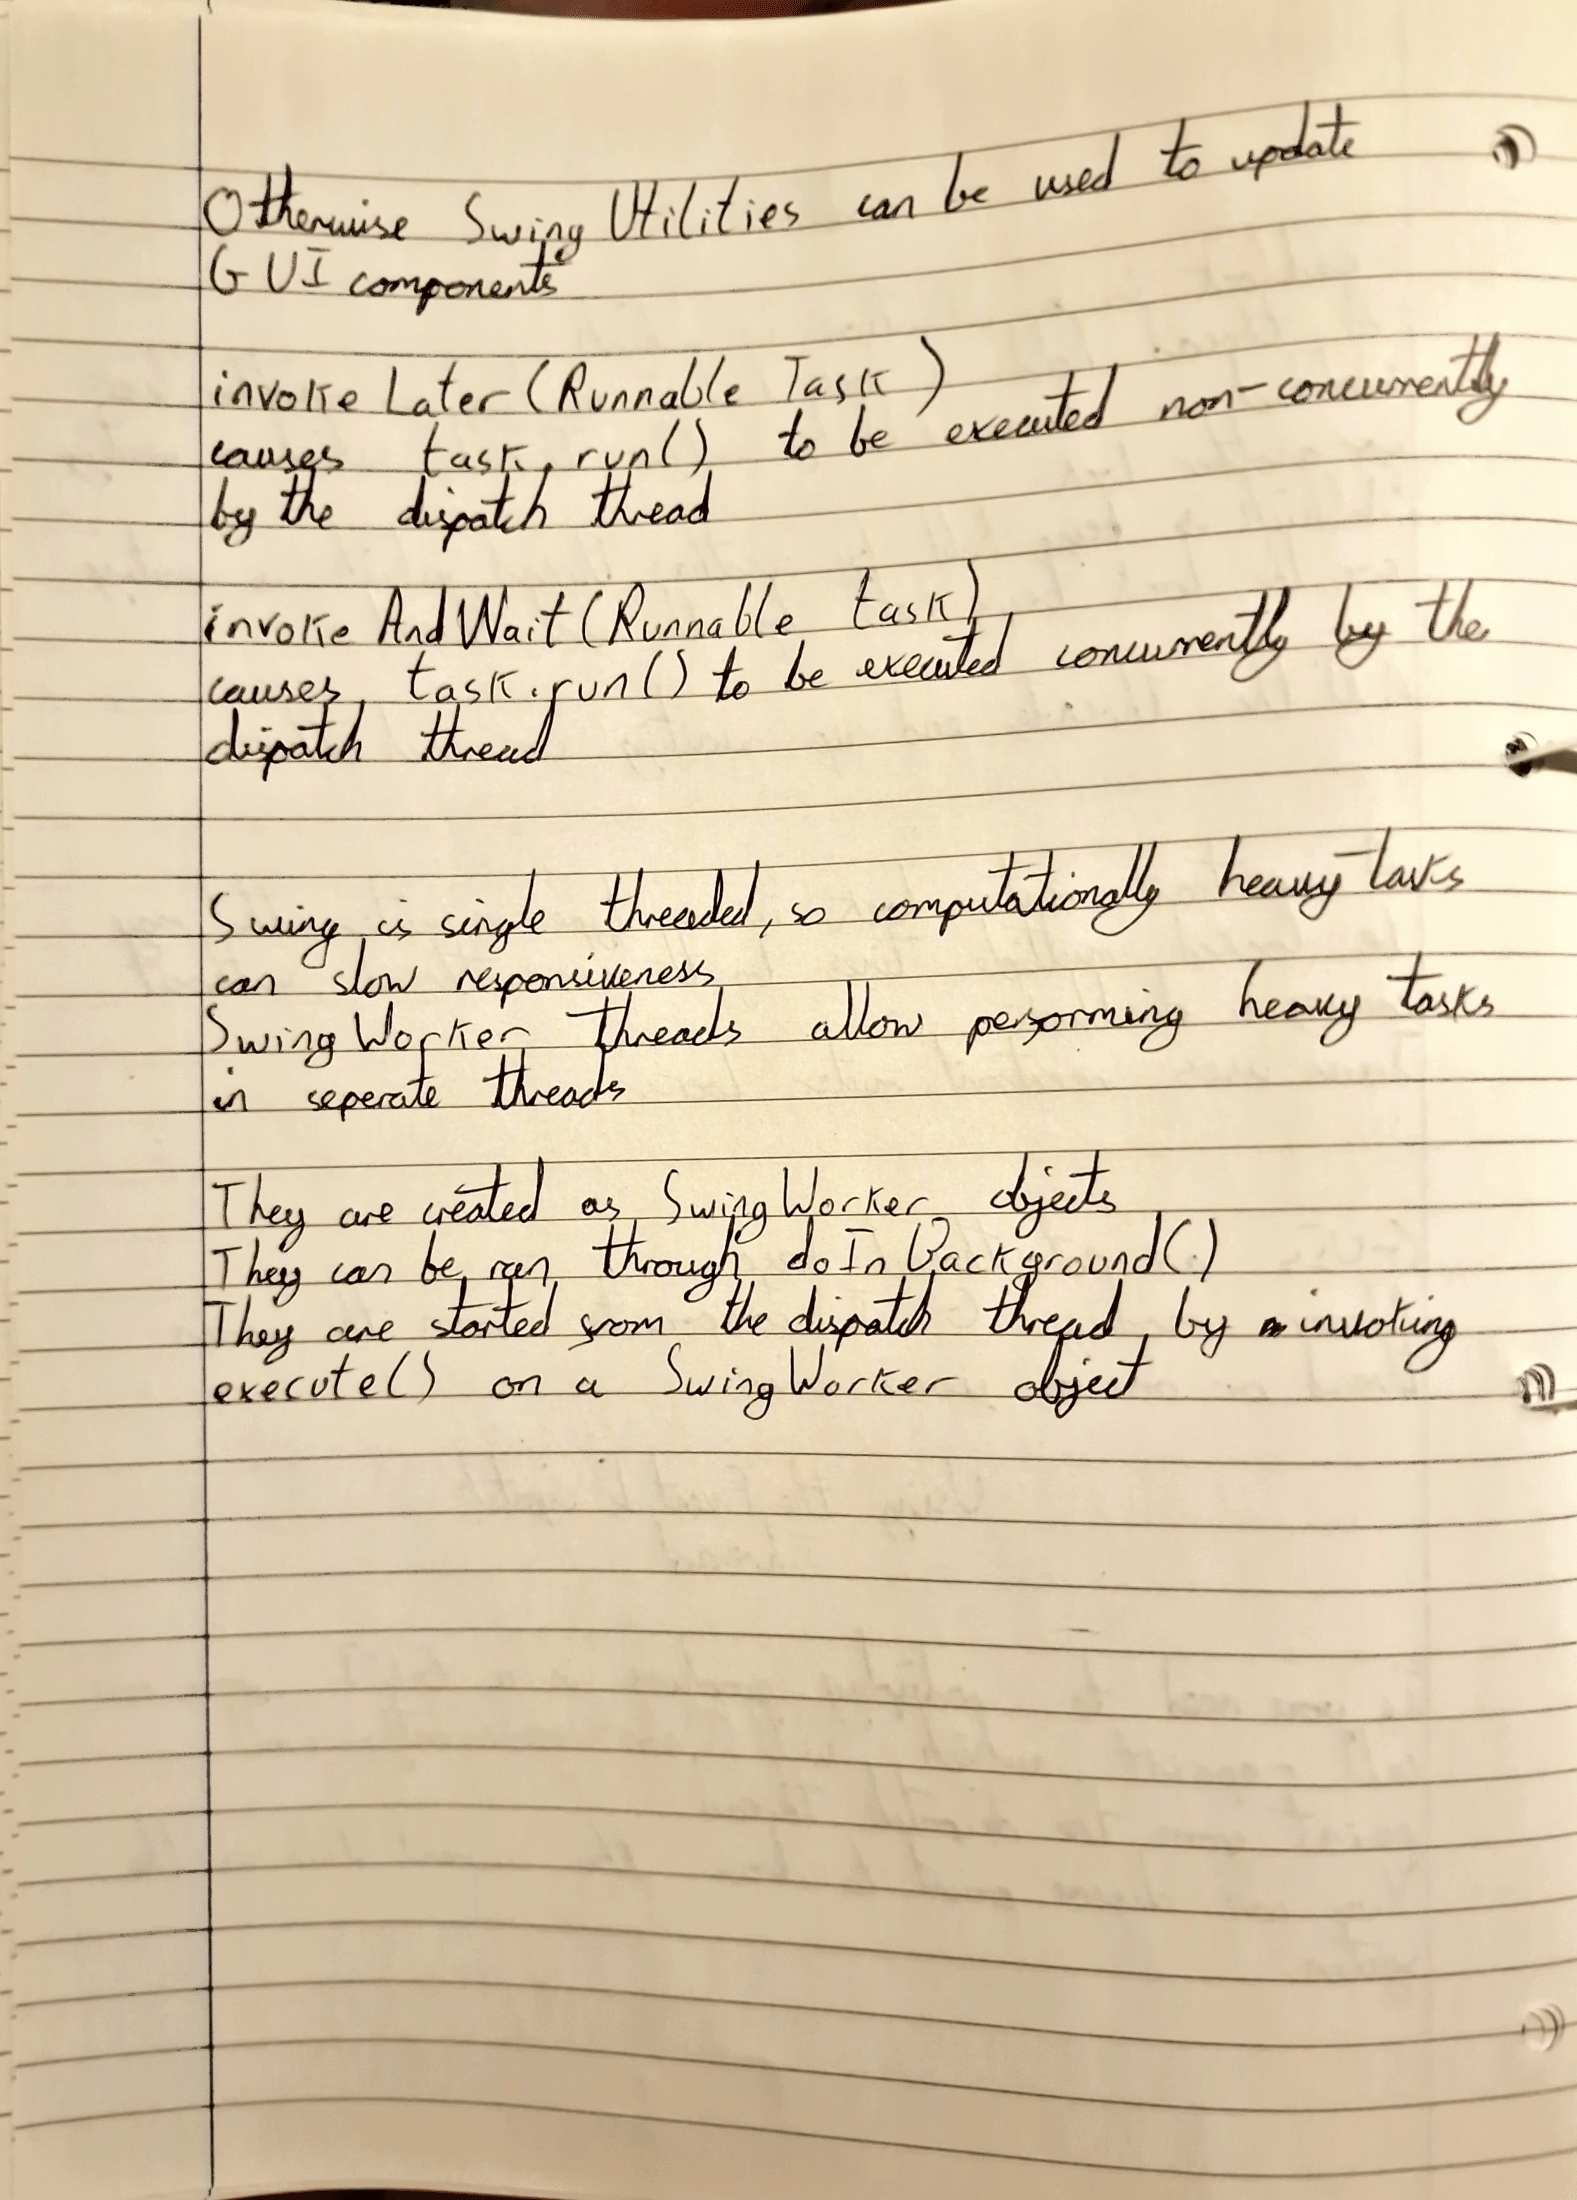 Otherwise SwingUtilities can be used to update
GUI components
invokeLater(Runnable Task)
causes task.run() to be executed non-concurrently
by the dispatch thread
invokeAndWait(Runnable task)
causes task.run() to be executed concurrently by the
dispatch thread
Swing is single threaded, so computationally heavy tasks
can slow responsiveness
SwingWorker threads allow performing heavy tasks
in seperate threads
They are created as SwingWorker objects
They can be ran through doInBackground()
They are started from the dispatch thread by invoking
execute() on a SwingWorker object